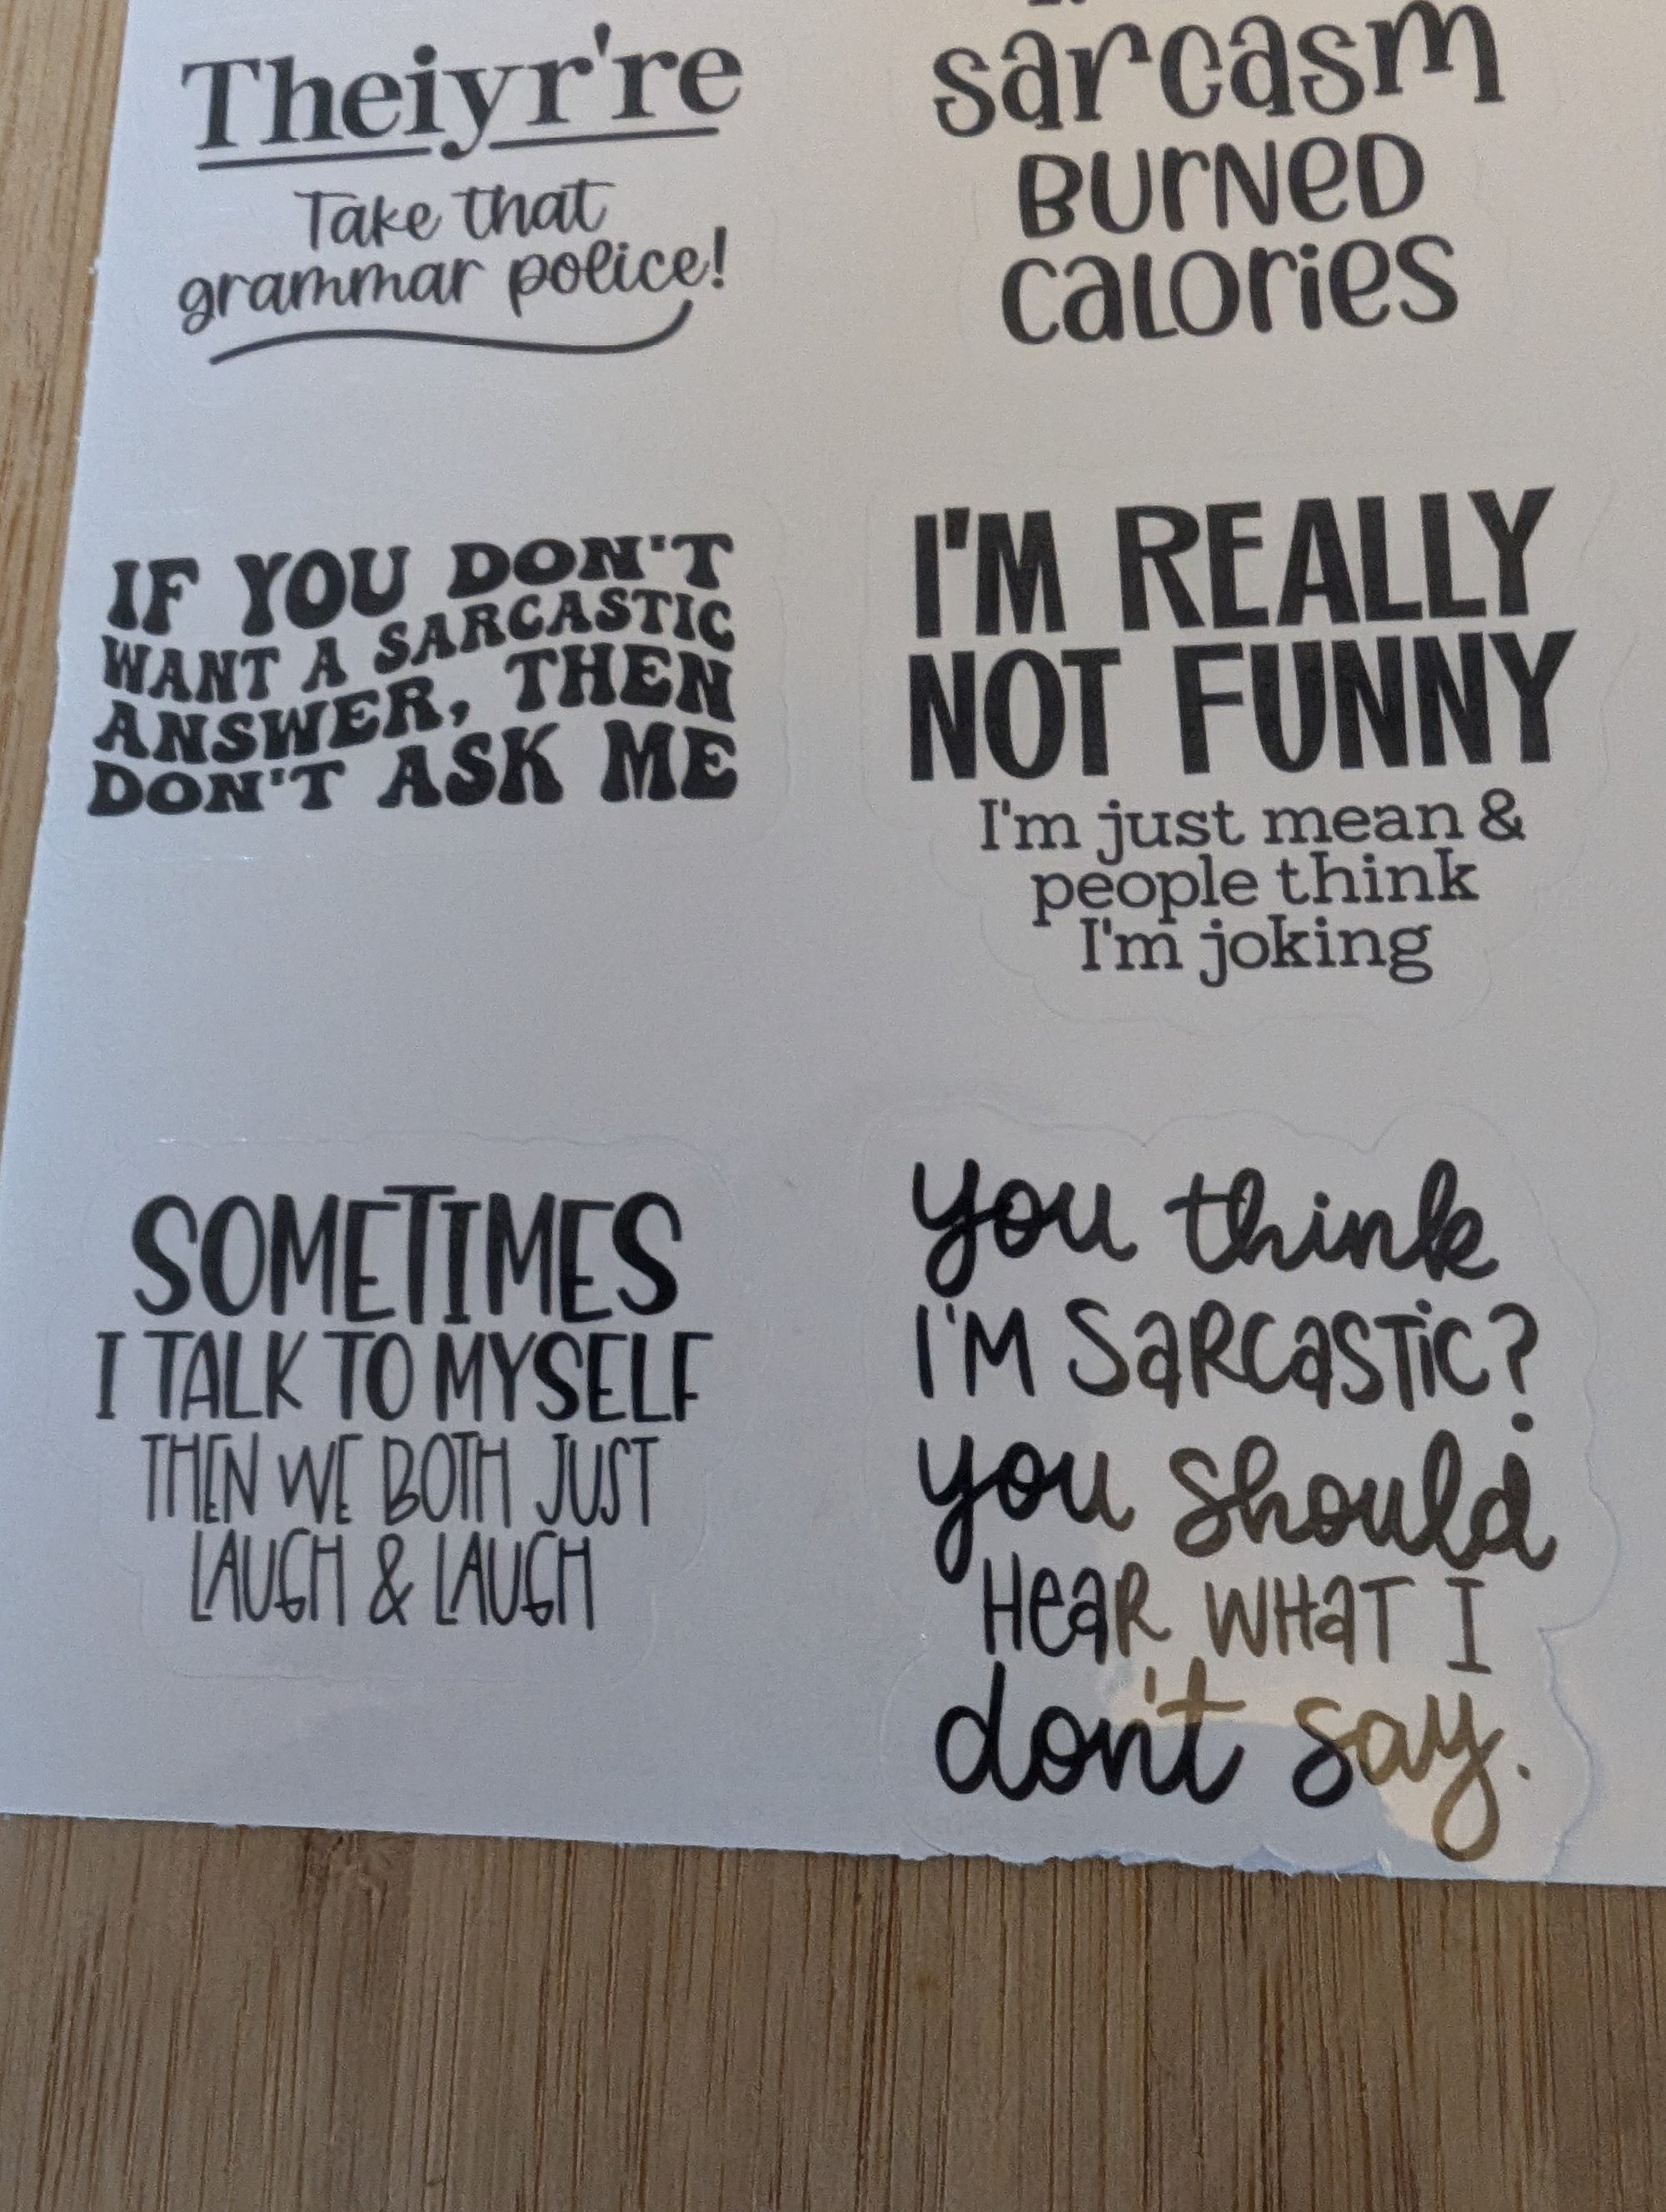 Theiyr're
Take that
grammar police!
sarcasm
BURNED
CALORIES
IF YOU DON'T
WANT A SARCASTIC
ANSWER, THEN
DON'T ASK ME
I'M REALLY
NOT FUNNY
I'm just mean &
people think
I'm joking
SOMETIMES
I TALK TO MYSELF
THEN WE BOTH JUST
LAUGH & LAUGH
you think
I'M SARCASTIC?
you should
HEAR WHAT I
don't say.